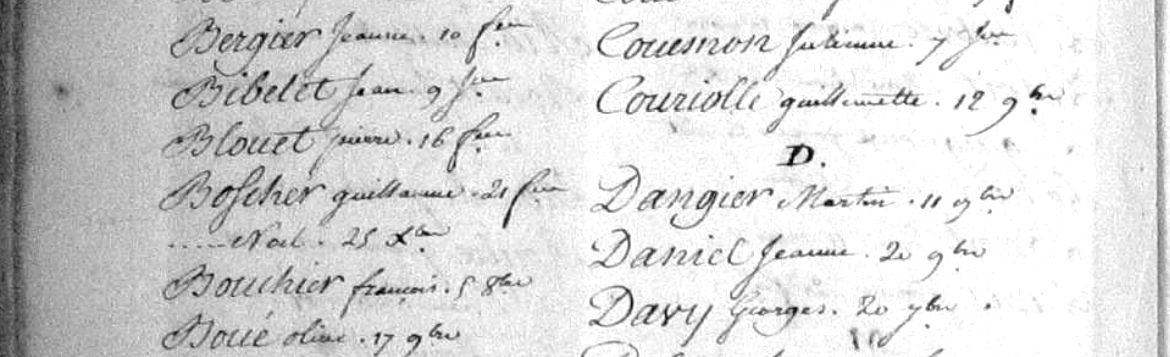 Bergier Jeanne. 10 fev
Bibelet Jean. 9 Jer
Blouet pierre. 16 fev
Boscher guillaume. 21 fev
..... Noel. 25 Xbre
Bouchier françois. 5 8bre
Boué olive. 17 9bre
Couesnon Julienne. 7 Jer
Couriolle guillemette. 12 9bre
D.
Dangier Martin. 11 9bre
Daniel Jeanne. 20 9bre
Davy Georges. 20 7bre